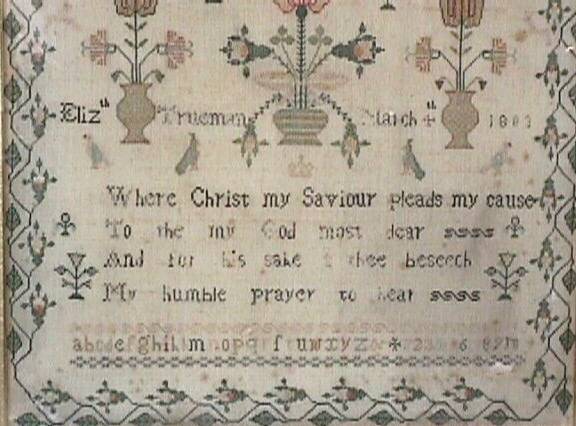 Eliz th Trueman March 4 th
Where Christ my Saviour pleads my cause
To the my God most dear
And for his sake I thee beseech
My humble prayer to hear
abcdefghiklm nopqrstuwxyz